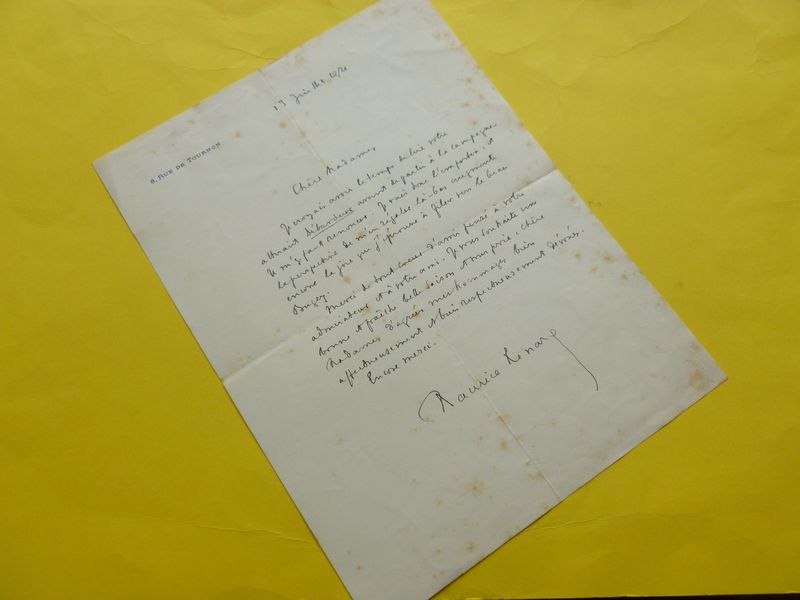 3, RUE DE TOURNON
17 Juillet
Chère Madame,
Je croyais avoir le temps de lire votre
attirant Débardeur avant de partir à la campagne.
Je m'y faut renoncer. Je vais donc l'emporter, et
la perspective de m'en régaler là-bas augmente
encore la joie que j'éprouve à filer vers le beau
Bugey.
Merci de tout cœur d'avoir pensé à votre
admirateur et à votre ami. Je vous souhaite un
bonne et fraîche belle saison et vous prie, chère
Madame, d'agréer mes hommages bien
affectueusement et bien respectueusement dévoués.
Encore merci.
Maurice Renard